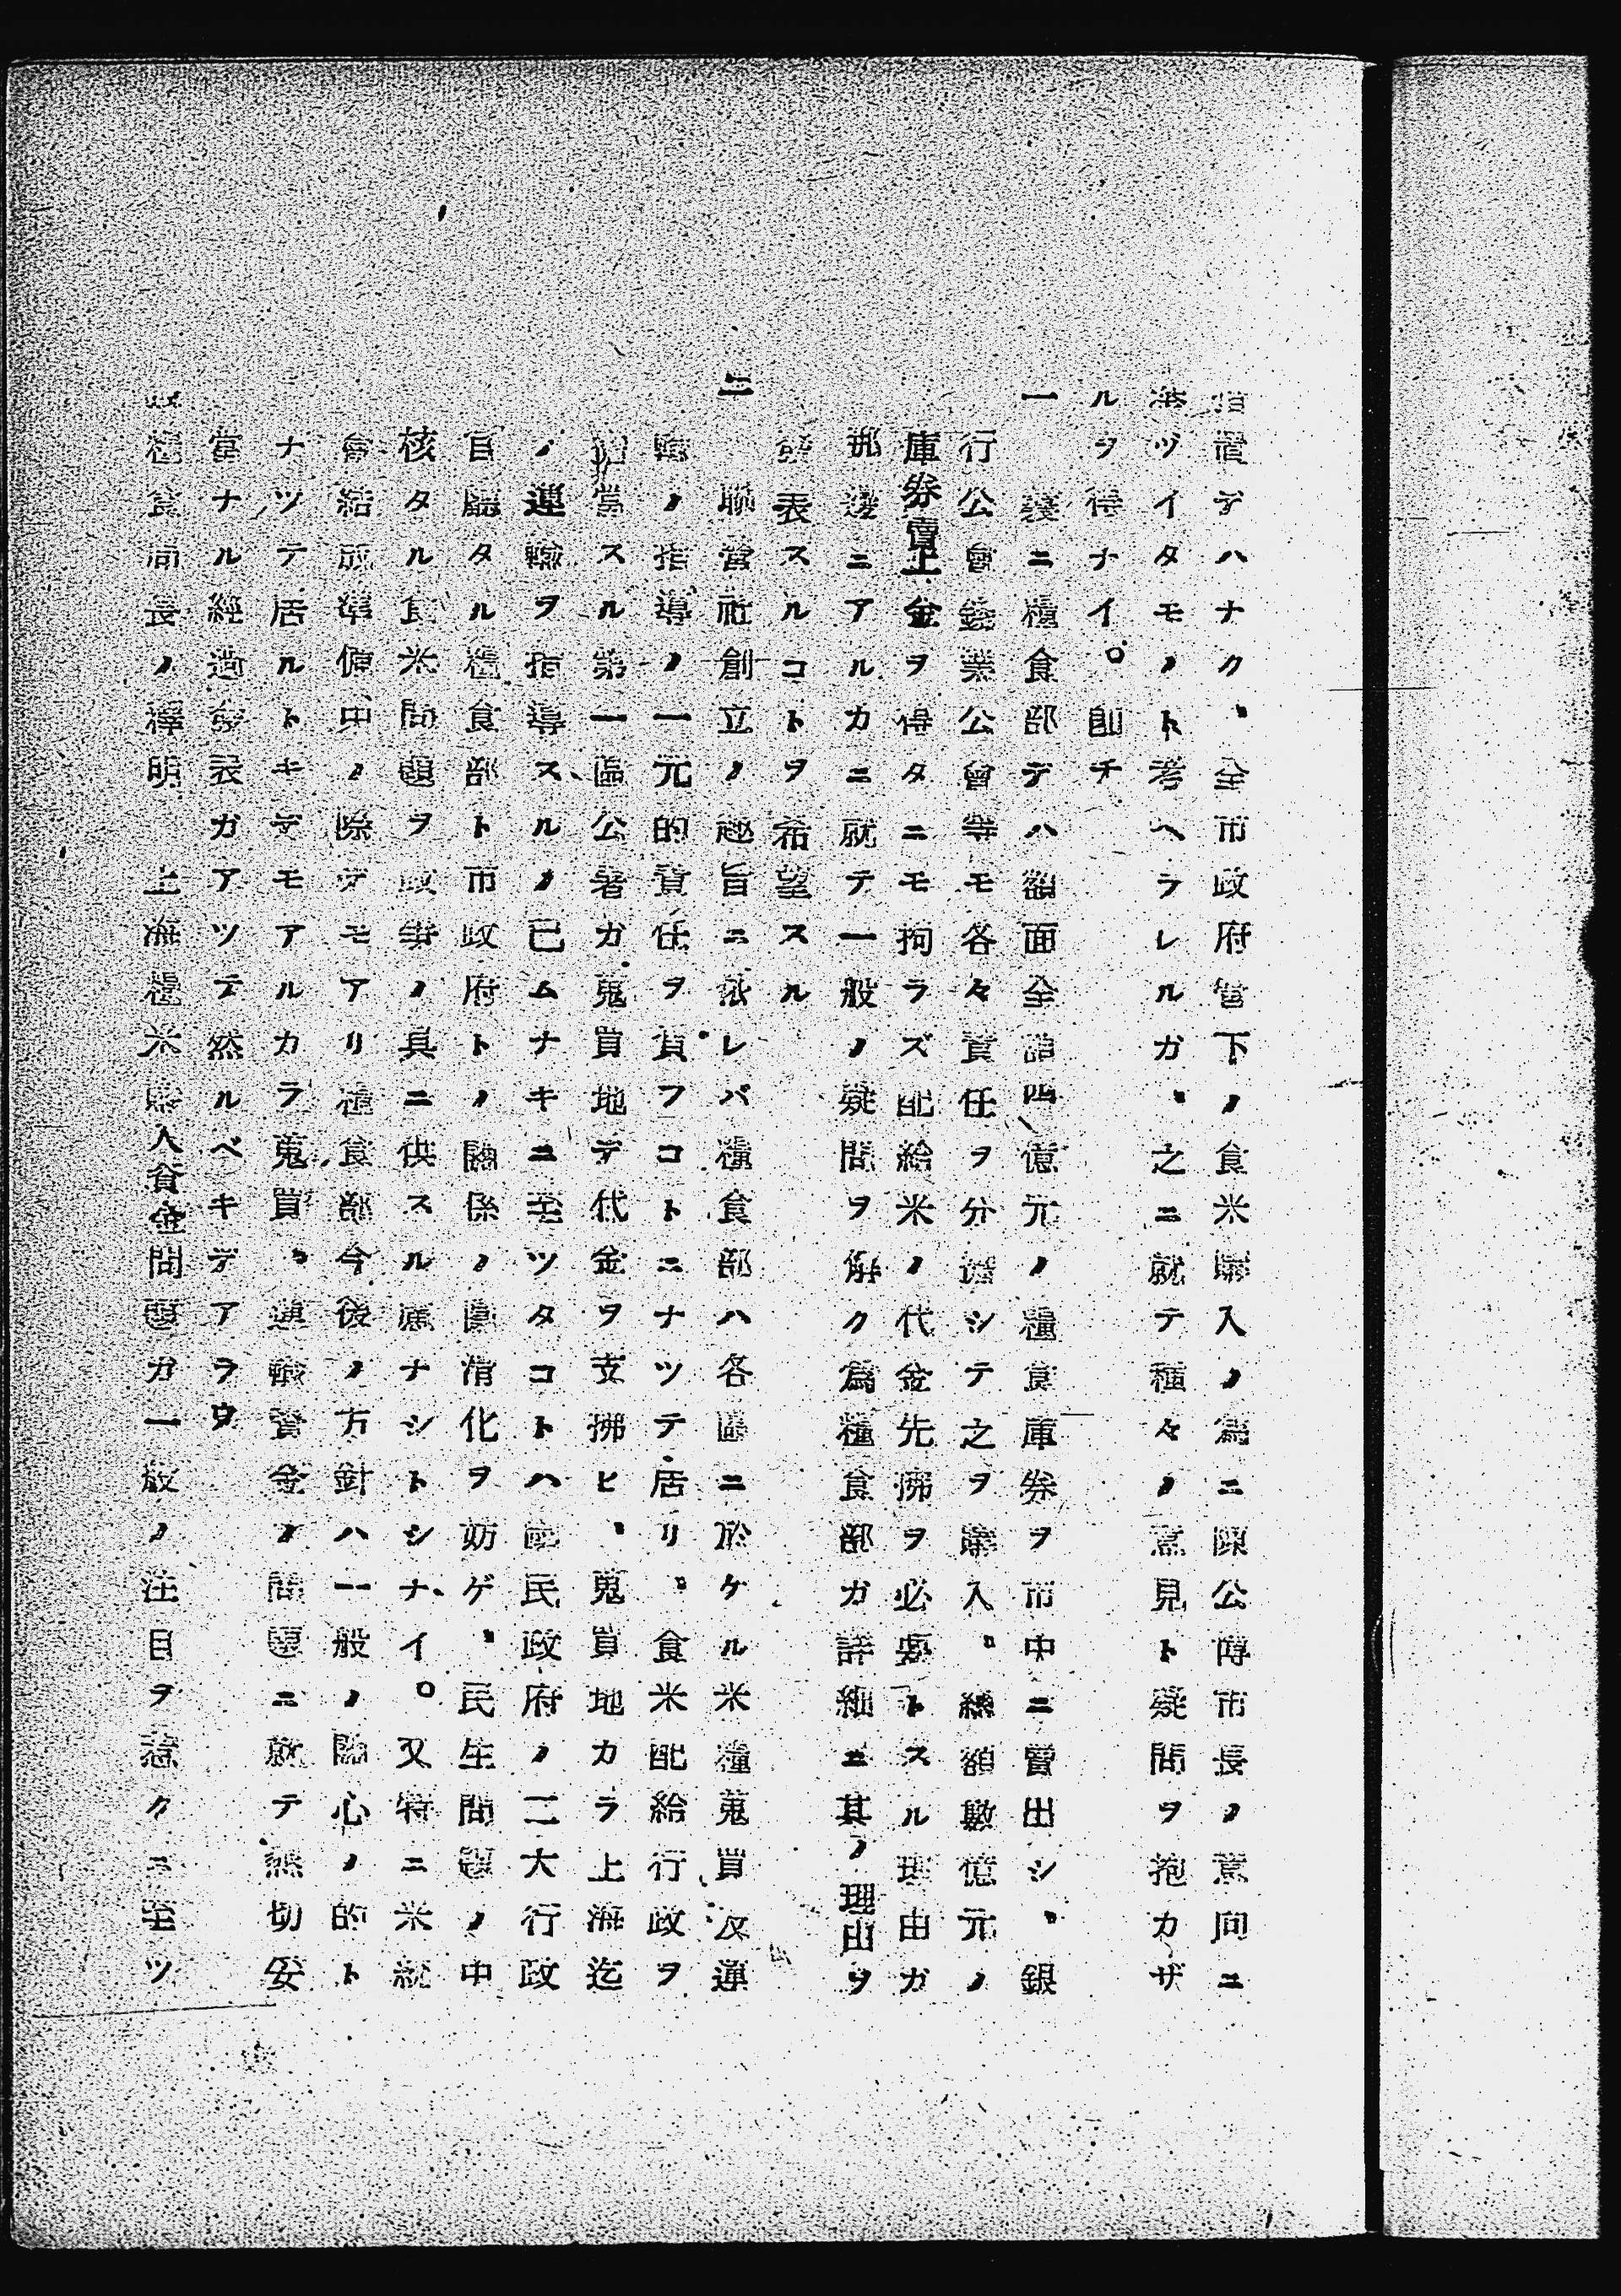 置デハナク、全市政府管下ノ食米購入ノ爲ニ陳公博市長ノ意向ニ
基ヅイタモノト考ヘラレルガ、之ニ就テ種々ノ意見ト疑問ヲ抱カザ
ルヲ得ナイ。卽チ
一 襄ニ糧食部デハ額面全額四億元ノ糧食庫券ヲ市中ニ賣出シ、銀
行公會錢業公會等モ各々責任ヲ分擔シテ之ヲ購入、總額數億元ノ
庫券賣上金ヲ得タニモ拘ラズ配給米ノ代金先拂ヲ必要トスル理由ガ
那邊ニアルカニ就テ一般ノ疑問ヲ解ク爲糧食部ガ詳細ニ其ノ理由ヲ
發表スルコトヲ希望スル
二 聯營社創立ノ趣旨ニ依レバ糧食部ハ各區ニ於ケル米糧蒐買及運
輸ノ指導ノ一元的責任ヲ負フコトニナツテ居リ、食米配給行政ヲ
擔當スル第一區公署ガ蒐買地デ代金ヲ支拂ヒ、蒐買地カラ上海迄
ノ運輸ヲ指導スルノ已ムナキニ至ツタコトハ國民政府ノ二大行政
官廳タル糧食部ト市政府トノ關係ノ圓滑化ヲ妨ゲ、民生問題ノ中
核タル食米問題ヲ政爭ノ具ニ供スル處ナシトシナイ。又特ニ米統
會結成準備中ノ際デモアリ糧食部今後ノ方針ハ一般ノ關心ノ的ト
ナツテ居ルトキデモアルカラ蒐買、運輸資金ノ問題ニ就テ懇切妥
當ナル經過發表ガアツテ然ルベキデアラウ
糧食局長ノ釋明 上海糧米購入資金問題ガ一般ノ注目ヲ惹クニ至ツ